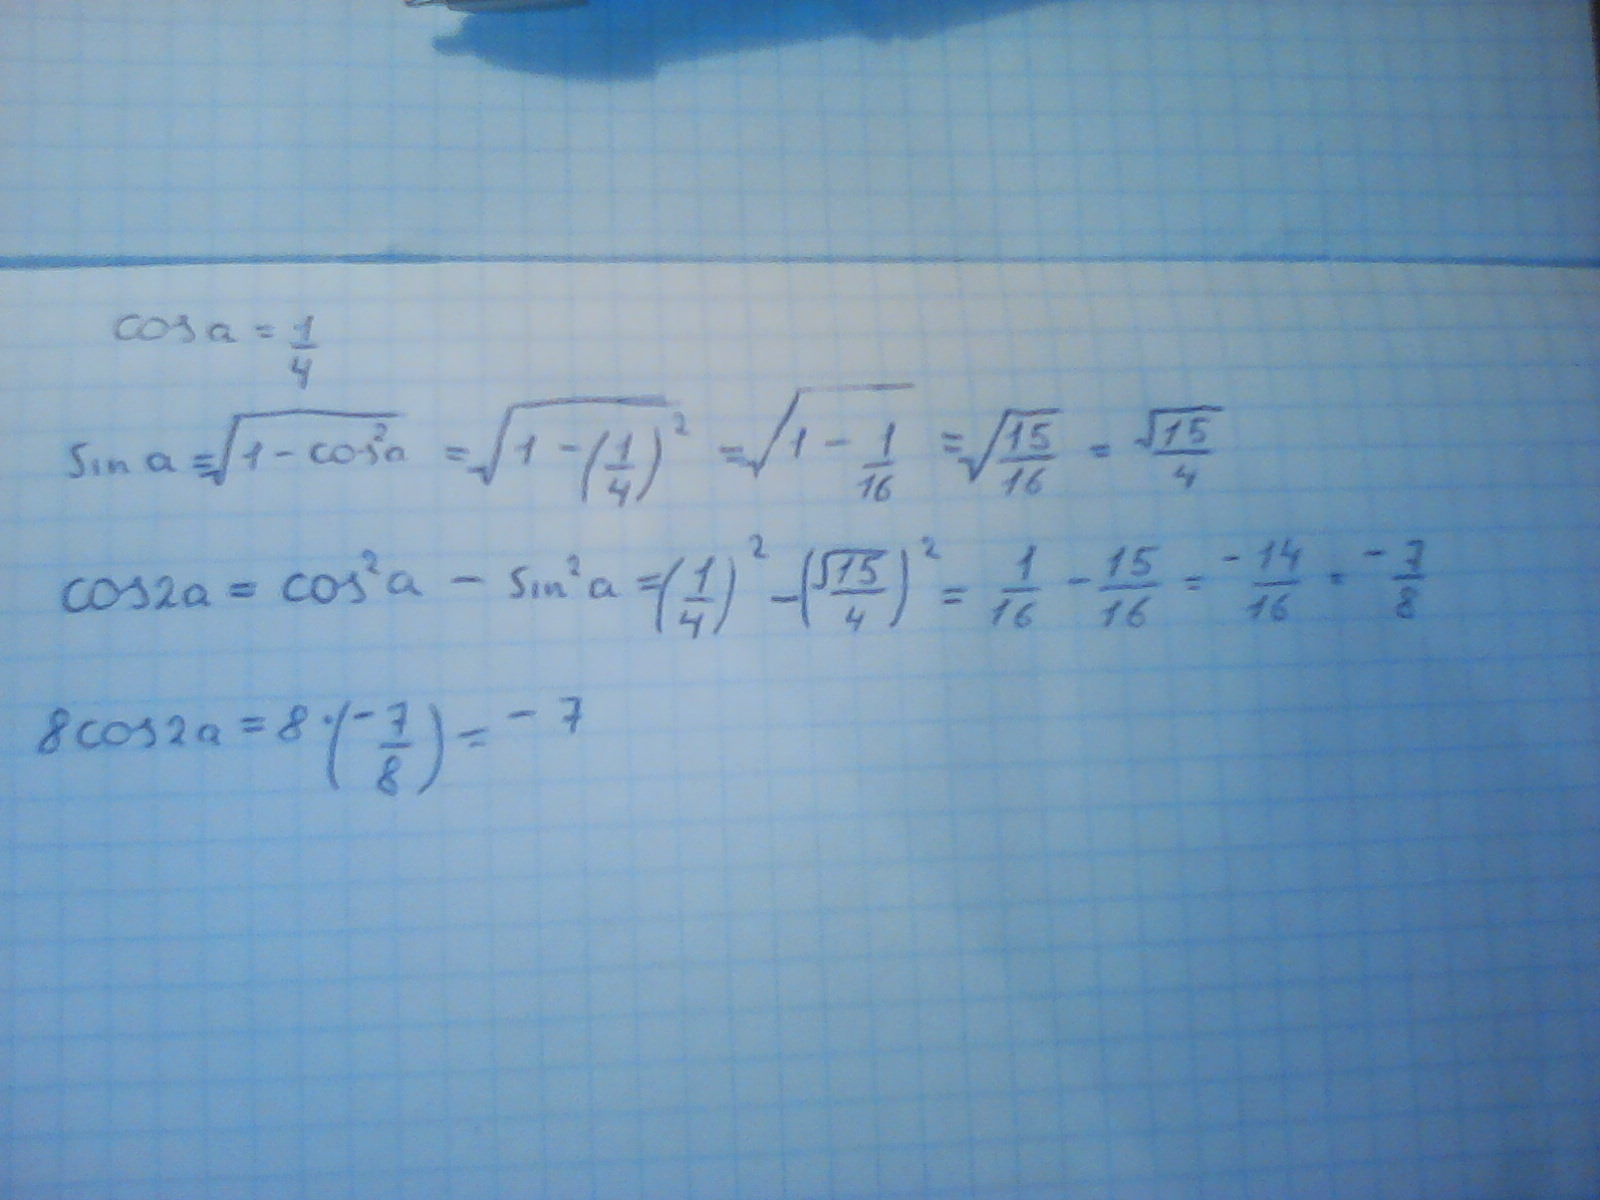 cos a = 1/4
sin a = √(1 - cos²a) = √(1 - (1/4)²) = √(1 - 1/16) = √(15/16) = √15/4
cos2a = cos²a - sin²a = (1/4)² - (√15/4)² = 1/16 - 15/16 = -14/16 = -7/8
8cos2a = 8·(-7/8) = -7